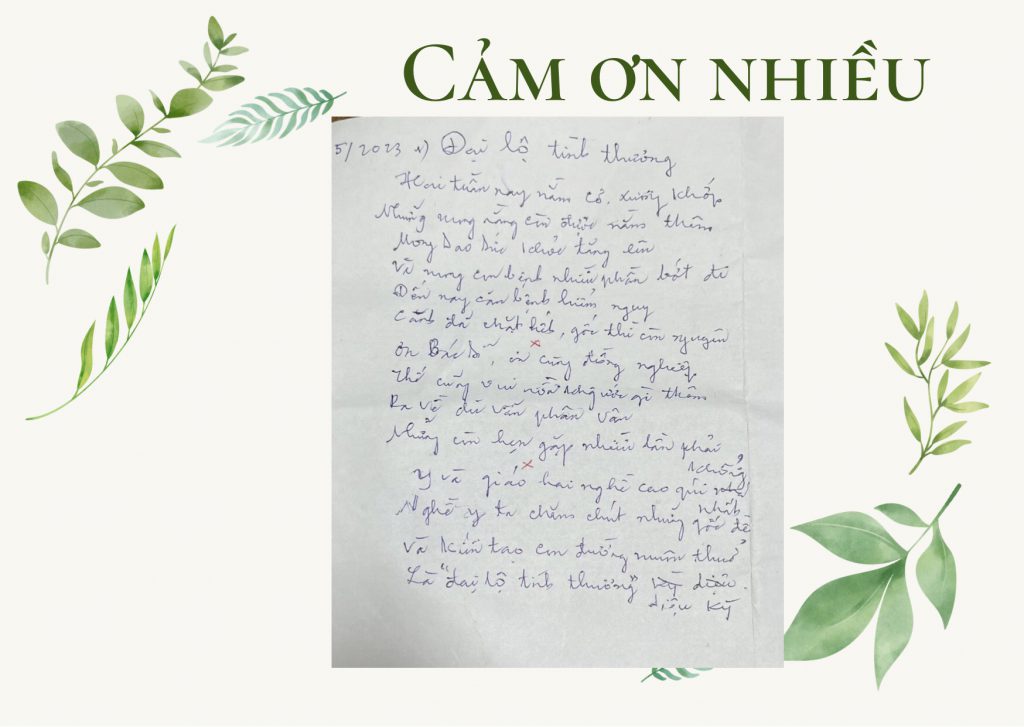 CẢM ƠN NHIỀU
5/2023 1) Đại lộ tình thương
Hai tuần nay nằm cơ xương khớp
Những mong rằng còn được nằm thêm
Mong sao sức khỏe tăng lên
Và mong con bệnh nhiều phần bớt đi
Đến nay căn bệnh hiểm nguy
Cành đã chặt hết, gốc thì còn nguyên
Ơn Bác sĩ, cùng đồng nghiệp
Thế cũng vui rồi gì thêm
Ra về dù vẫn phân vân
Những còn hẹn gặp nhiều lần phải không
Y và giáo hai nghề cao quí nhất
Nghề y ta chăm chút những gốc đề
Và kiến tạo con đường muôn thuở
Là "đại lộ tình thương" diệu
diệu kỳ